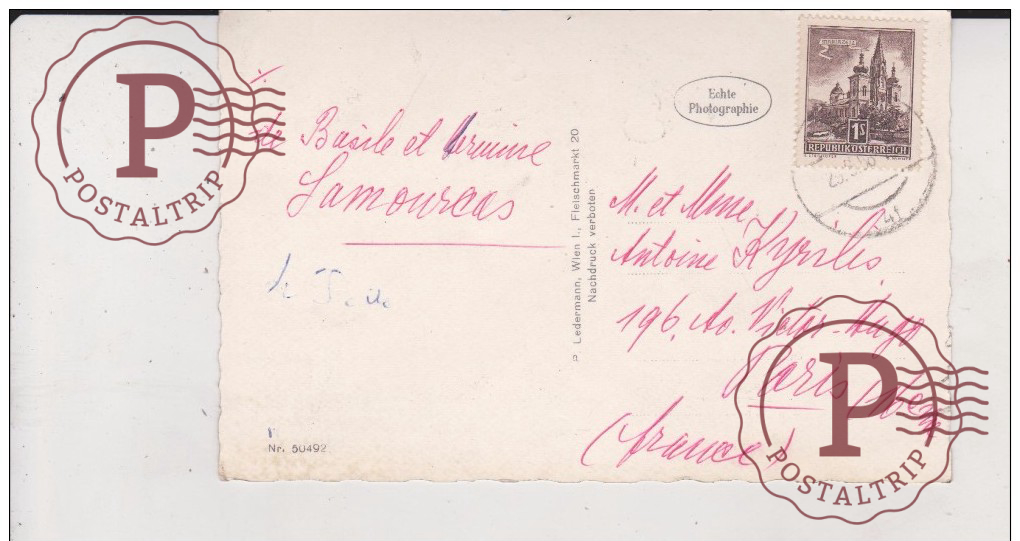 de Basile et
Lamoureas
Nr. 50492
P Ledermann, Wien I., Fleischmarkt 20
Nachdruck verboten
Echte
Photographie
MARIAZELL
1S
REPUBLIK ÖSTERREICH
M. et Mme
Antoine
196, Av. Victor-Hugo
Paris
(France)
P
POSTALTRIP
P
POSTALTRIP